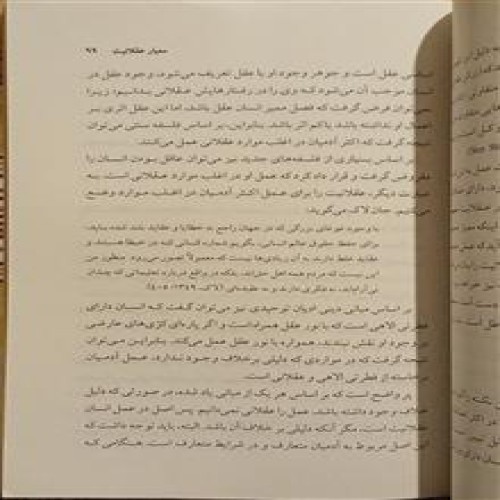 معیار عقلانیت ۹۹
اساسی عقل است و جوهر وجود او با عقل تعریف می‌شود، وجود عقل در
انسان موجب آن می‌شود که وی را در رفتارهایش عقلانی بدانیم؛ زیرا
نمی‌توان فرض گرفت که فصل ممیز انسان عقل باشد، اما این عقل اثری بر
اعمال او نداشته باشد، یا کم اثر باشد. بنابراین، بر اساس فلسفه سنتی می‌توان
نتیجه گرفت که اکثر آدمیان در اغلب موارد عقلانی عمل می‌کنند.
بر اساس بسیاری از فلسفه‌های جدید نیز می‌توان عاقل بودن انسان را
مفروض گرفت و قرار داد کرد که عمل او در اغلب موارد عقلانی است. به
عبارت دیگر، عقلانیت را برای عمل اکثر آدمیان در اغلب موارد وضع
می‌کنیم. جان لاک می‌گوید:
با وجود غوغای بزرگی که در جهان راجع به خطایا و عقاید بلند شده بباید،
برای حفظ حقوق عالم انسانی، بگویم شماره کسانی که در خبط‌ها هستند و
عقاید غلط دارند به آن زیادی‌ها نیست که معمولاً تصور می‌رود. منظور من
این نیست که مردم همه اهل حق‌اند، بلکه در واقع درباره تعلیماتی که چندان
نی آرام‌اند، نه فکری دارند و نه عقیده‌ای (لاک، ۱۳۴۹: ۴۰۵)
بر اساس مبانی دینی ادیان توحیدی نیز می‌توان گفت که انسان دارای
فطرتی الاهی است که با نور عقل همراه است و اگر پاره‌ای کژی‌های عارضی
در وجود او نقش نبندند، همواره با نور عقل عمل می‌کند. بنابراین می‌توان
نتیجه گرفت که در مواردی که دلیلی بر خلاف وجود ندارد، عمل آدمیان
برخاسته از فطرتی الاهی و عقلانی است.
پر واضح است که بر اساس هر یک از مبانی یاد شده، در صورتی که دلیل
خلاف وجود داشته باشد، عمل را عقلانی نمی‌دانیم. پس اصل در عمل انسان
عقلانیت است، مگر آنکه دلیلی بر خلاف آن باشد. البته، باید توجه داشت که
این اصل مربوط به آدمیان متعارف و در شرایط متعارف است. هنگامی که